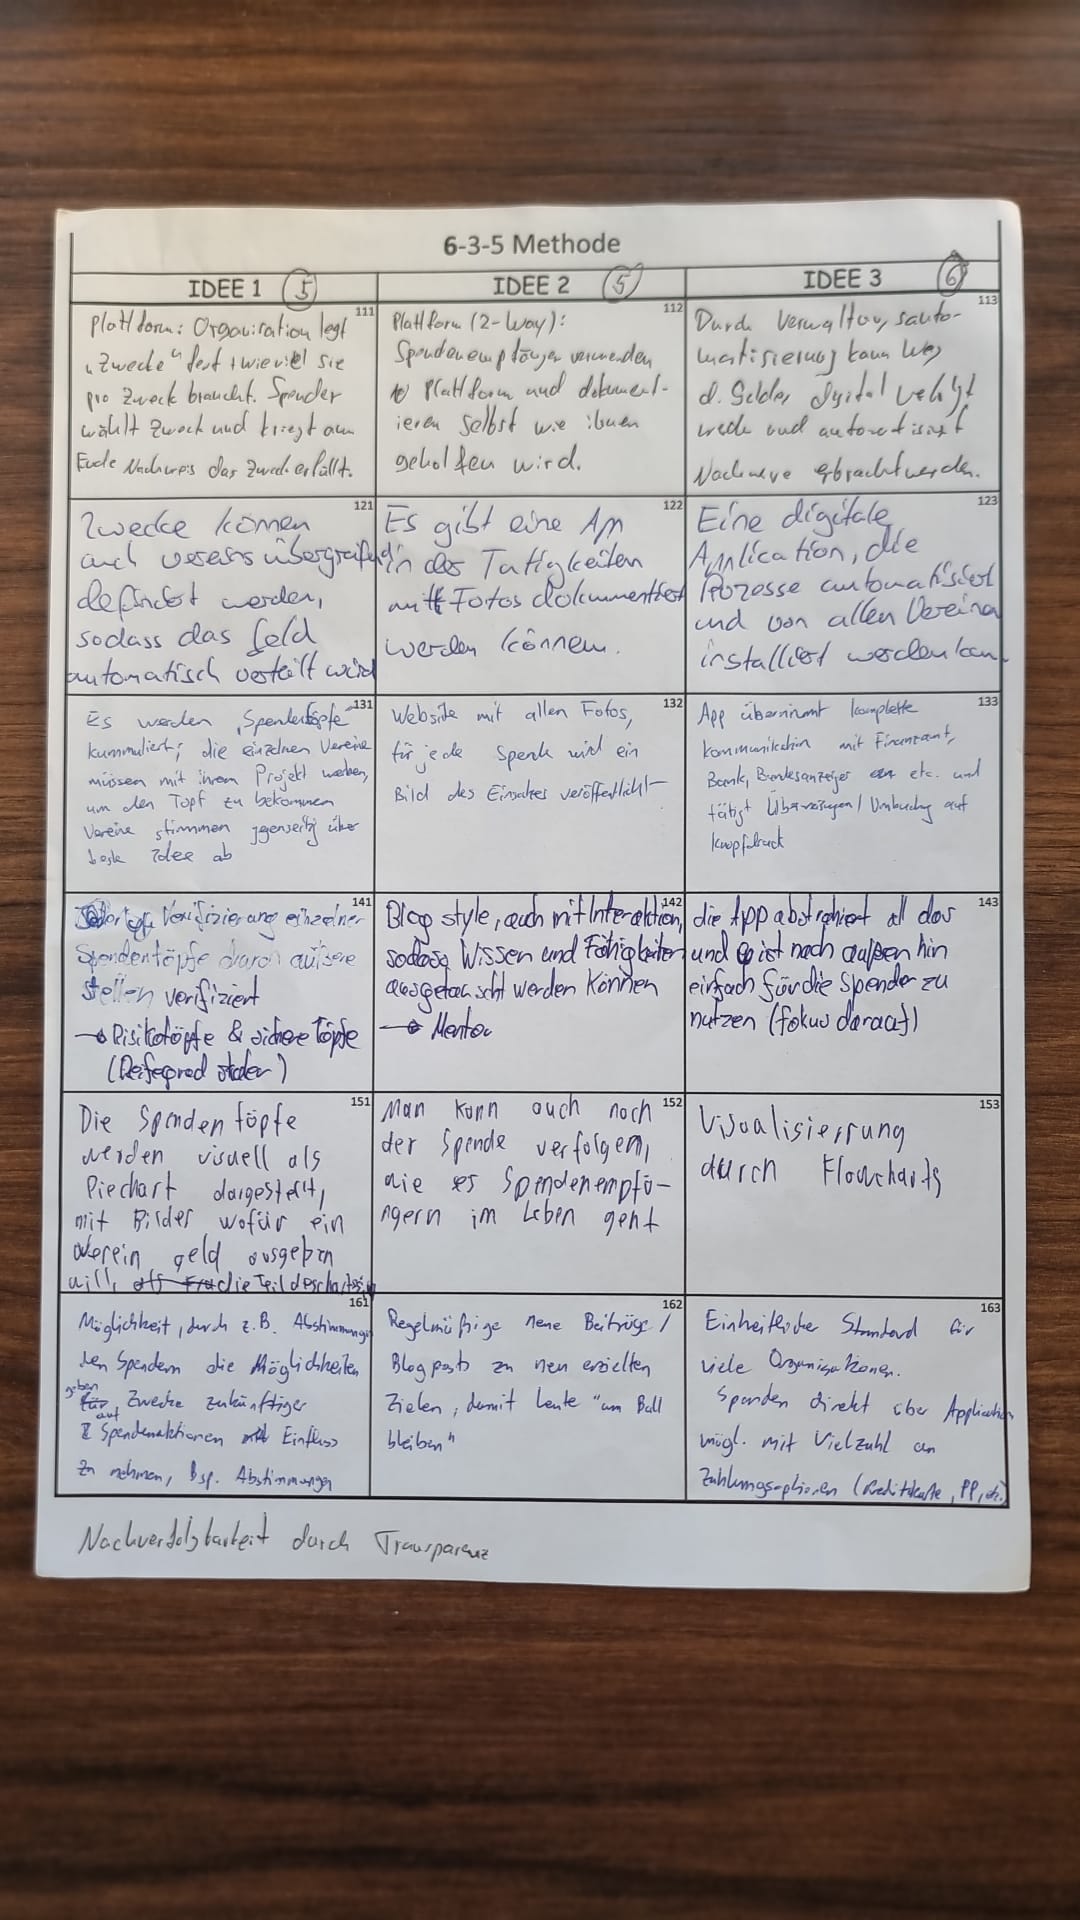 6-3-5 Methode
IDEE 1 5
IDEE 2 5
IDEE 3 6
111
Plattform: Organisation legt
"Zwecke" fest + wie viel sie
pro Zweck braucht. Spender
wählt Zweck und kriegt am
Ende Nachweis das Zweck erfüllt.
112
Plattform (2-Way):
Spendenempfänger verwenden
Plattform und dokument-
ieren selbst wie ihnen
geholfen wird.
113
Durch Verwaltungsauto-
matisierung kann Weg
d. Gelder digital verfolgt
werden und automatisiert
Nachweise erbracht werden.
121
Zwecke können
auch vereinsübergreifend
definiert werden,
sodass das Geld
automatisch verteilt wird
122
Es gibt eine App
in der Tätigkeiten
mit Fotos dokumentiert
werden können.
123
Eine digitale
Application, die
Prozesse automatisiert
und von allen Vereinen
installiert werden kann.
131
Es werden Spendentöpfe
kummuliert, die einzelnen Vereine
müssen mit ihrem Projekt werben,
um den Topf zu bekommen
Vereine stimmen gegenseitig über
beste Idee ab
132
Website mit allen Fotos,
für jede Spende wird ein
Bild des Einsatzes veröffentlicht
133
App übernimmt komplette
Kommunikation mit Finanzamt,
Bank, Bundesanzeiger etc. und
tätigt Überweisungen / Umbuchung auf
Knopfdruck
141
Verifizierung einzelner
Spendentöpfe durch äußere
Stellen verifiziert
→ Risikotöpfe & sichere Töpfe
(Reifegrad
142
Blog style, auch mit Interaktion,
sodass Wissen und Fähigkeiten
ausgetauscht werden können
→ Mentor
143
die App abstrahiert all das
und ist nach außen hin
einfach für die Spender zu
nutzen (fokus darauf)
151
Die Spendentöpfe
werden visuell als
Piechart dargestellt,
mit Bilder wofür ein
Verein geld ausgeben
will, die Teil des
152
Man kann auch nach
der Spende verfolgen,
wie es Spendenempfä-
ngern im Leben geht
153
Visualisierung
durch Flowcharts
161
Möglichkeit, durch z.B. Abstimmungen
den Spendern die Möglichkeiten
geben
Zwecke zukünftiger
auf
Spendenaktionen Einfluss
zu nehmen, Bsp. Abstimmungen
162
Regelmäßige neue Beiträge /
Blogposts zu neu erzielten
Zielen, damit Leute "am Ball
bleiben"
163
Einheitlicher Standard für
viele Organisationen.
Spenden direkt über Application
mögl. mit Vielzahl an
Zahlungsoptionen (Kreditkarte, PP, etc.)
Nachverfolgbarkeit durch Transparenz